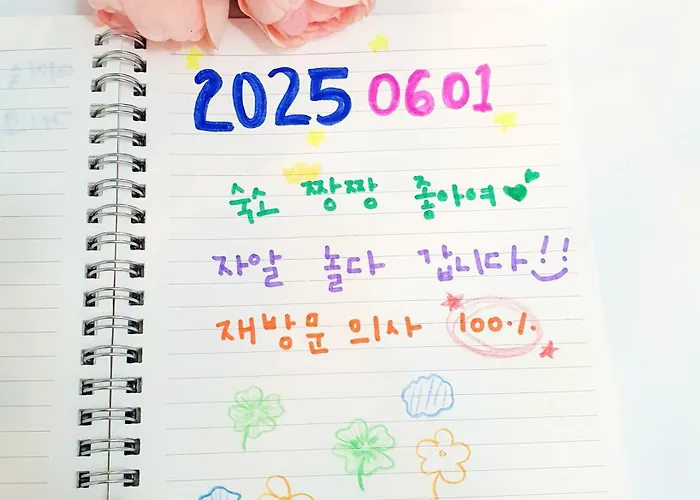 2025 0601
숙소 짱짱 좋아여
자알 놀다 갑니다!!
재방문 의사 100%